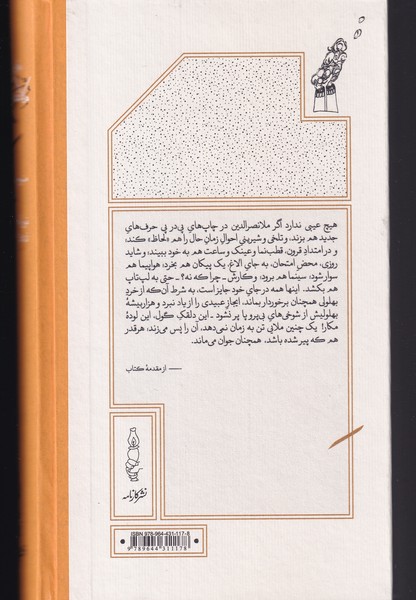 هیچ عیبی ندارد اگر ملانصرالدین در چاپ‌های پی‌در پی حرف‌های
جدید هم بزند، و تلخی و شیرینیِ احوالِ زمانِ حال را هم «لحاظ» کند،
و در امتدادِ قرون، قطب‌نما و عینک و ساعت هم به خود ببیند؛ و شاید
روزی، محضِ امتحان، به جای الاغ، یک پیکان هم بخرد؛ هواپیما هم
سوار شود، سینما هم برود، وکارش ـ چرا که نه؟ ـ حتی به لب‌تاپ
هم بکشد. اینها همه در جای خود جایز است، به شرط آن‌که از خردِ
بهلولی همچنان برخوردار بماند، ایجازِ عبیدی را از یاد نبرد و هزار بیشهٔ
بهلولیش از شوخی‌های بی‌پر و پا پر نشود ـ این دلقکِ گول، این لودهٔ
مکار! یک چنین ملایی تن به زمان نمی‌دهد، آن را پس می‌زند؛ هرقدر
هم که پیر شده باشد، همچنان جوان می‌ماند.
— از مقدمهٔ کتاب
نشر کارنامه
ISBN 978-964-431-117-8
9 789644 311178